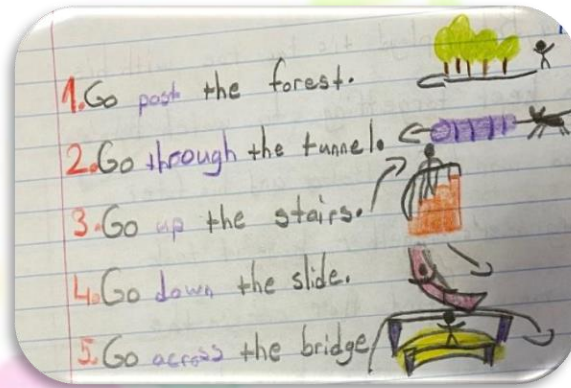 1. Go past the forest.
2. Go through the tunnel.
3. Go up the stairs.
4. Go down the slide.
5. Go across the bridge